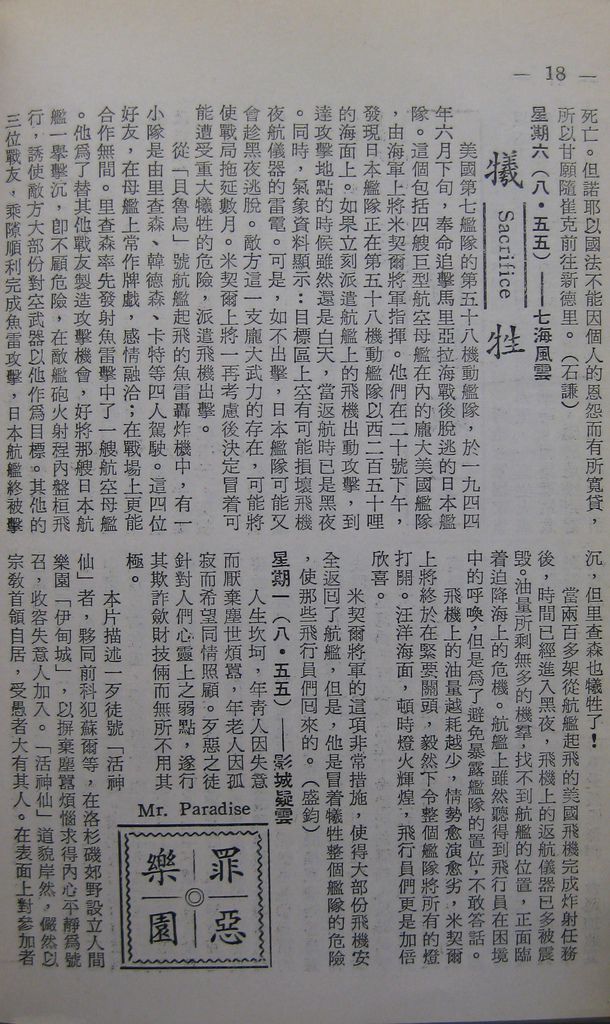 — 18 —
死亡。但諾耶以國法不能因個人的恩怨而有所寬貸，
所以甘願隨崔克前往新德里。（石謙）
星期六（八・五五）——七海風雲
犧牲
Sacrifice
美國第七艦隊的第五十八機動艦隊，於一九四四
年六月下旬，奉命追擊馬里亞拉海戰後脫逃的日本艦
隊。這個包括四艘巨型航空母艦在內的龐大美國艦隊
，由海軍上將米契爾將軍指揮。他們在二十號下午，
發現日本艦隊正在第五十八機動艦隊以西二百五十哩
的海面上。如果立刻派遣航艦上的飛機出動攻擊，到
達攻擊地點的時候雖然還是白天，當返航時已是黑夜
。同時，氣象資料顯示：目標區上空有可能損壞飛機
夜航儀器的雷電。可是，如不出擊，日本艦隊可能又
會趁黑夜逃脫。敵方這一支龐大武力的存在，可能將
使戰局拖延數月。米契爾上將一再考慮後決定冒着可
能遭受重大犧牲的危險，派遣飛機出擊。
從「貝魯烏」號航艦起飛的魚雷轟炸機中，有一
小隊是由里查森、韓德森、卡特等四人駕駛。這四位
好友，在母艦上常作牌戲，感情融洽；在戰場上更能
合作無間。里查森率先發射魚雷擊中了一艘航空母艦
。他爲了替其他戰友製造攻擊機會，好將那艘日本航
艦一舉擊沉，卽不顧危險，在敵艦砲火射程內盤桓飛
行，誘使敵方大部份對空武器以他作爲目標。其他的
三位戰友，乘隙順利完成魚雷攻擊，日本航艦終被擊
沉，但里查森也犧牲了！
當兩百多架從航艦起飛的美國飛機完成炸射任務
後，時間已經進入黑夜，飛機上的返航儀器已多被震
毀。油量所剩無多的機羣，找不到航艦的位置，正面臨
着迫降海上的危機。航艦上雖然聽得到飛行員在困境
中的呼喚，但是爲了避免暴露艦隊的置位，不敢答話。
飛機上的油量越耗越少，情勢愈演愈劣，米契爾
上將終於在緊要關頭，毅然下令整個艦隊將所有的燈
打開。汪洋海面，頓時燈火輝煌，飛行員們更是加倍
欣喜。
米契爾將軍的這項非常措施，使得大部份飛機安
全返回了航艦，但是，他是冒着犧牲整個艦隊的危險
，使那些飛行員們回來的。（盛鈞）
星期一（八・五五）——影城疑雲
罪惡樂園
Mr. Paradise
人生坎坷，年青人因失意
而厭棄塵世煩囂，年老人因孤
寂而希望同情照顧。歹惡之徒
針對人們心靈上之弱點，遂行
其欺詐歛財技倆而無所不用其
極。
本片描述一歹徒號「活神
仙」者，夥同前科犯蘇爾等，在洛杉磯郊野設立人間
樂園「伊甸城」，以摒棄塵囂煩惱求得內心平靜爲號
召，收容失意人加入。「活神仙」道貌岸然，儼然以
宗敎首領自居，受愚者大有其人。在表面上對參加者